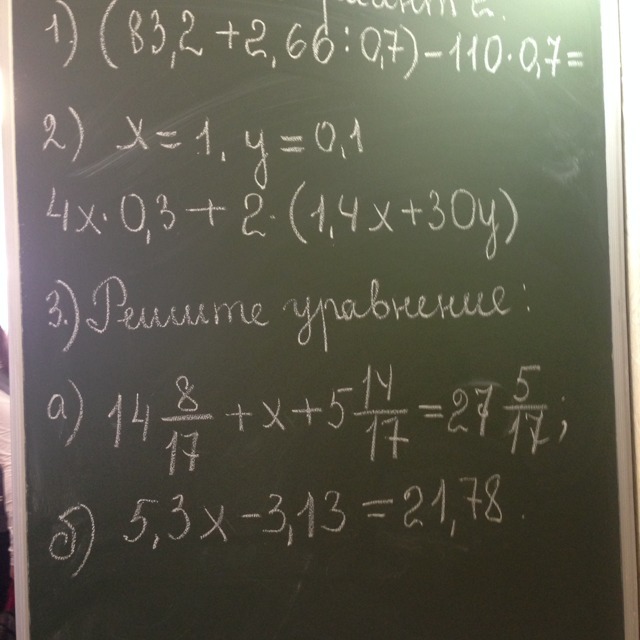 2.
1) (83,2 + 2,66 : 0,7) - 110 · 0,7 =
2) x = 1, y = 0,1
4x · 0,3 + 2 · (1,4x + 30y)
3.) Решите уравнение:
а) 14 8/17 + x + 5 14/17 = 27 5/17;
б) 5,3x - 3,13 = 21,78.